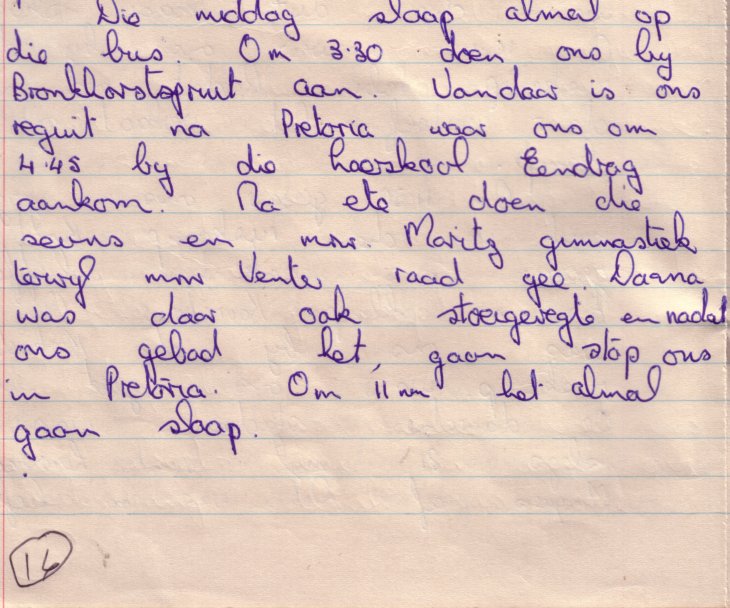 Die middag slaap almal op
die bus. Om 3.30 doen ons by
Bronkhorstspruit aan. Vandaar is ons
reguit na Pretoria waar ons om
4.45 by die hoerskool Eendrag
aankom. Na ete doen die
seuns en mnr. Maritz gimnastiek
terwyl mnr Venter raad gee. Daarna
was daar ook stoeigevegte en nadat
ons gebad het, gaan stap ons
in Pretoria. Om 11 nm het almal
gaan slaap.
16